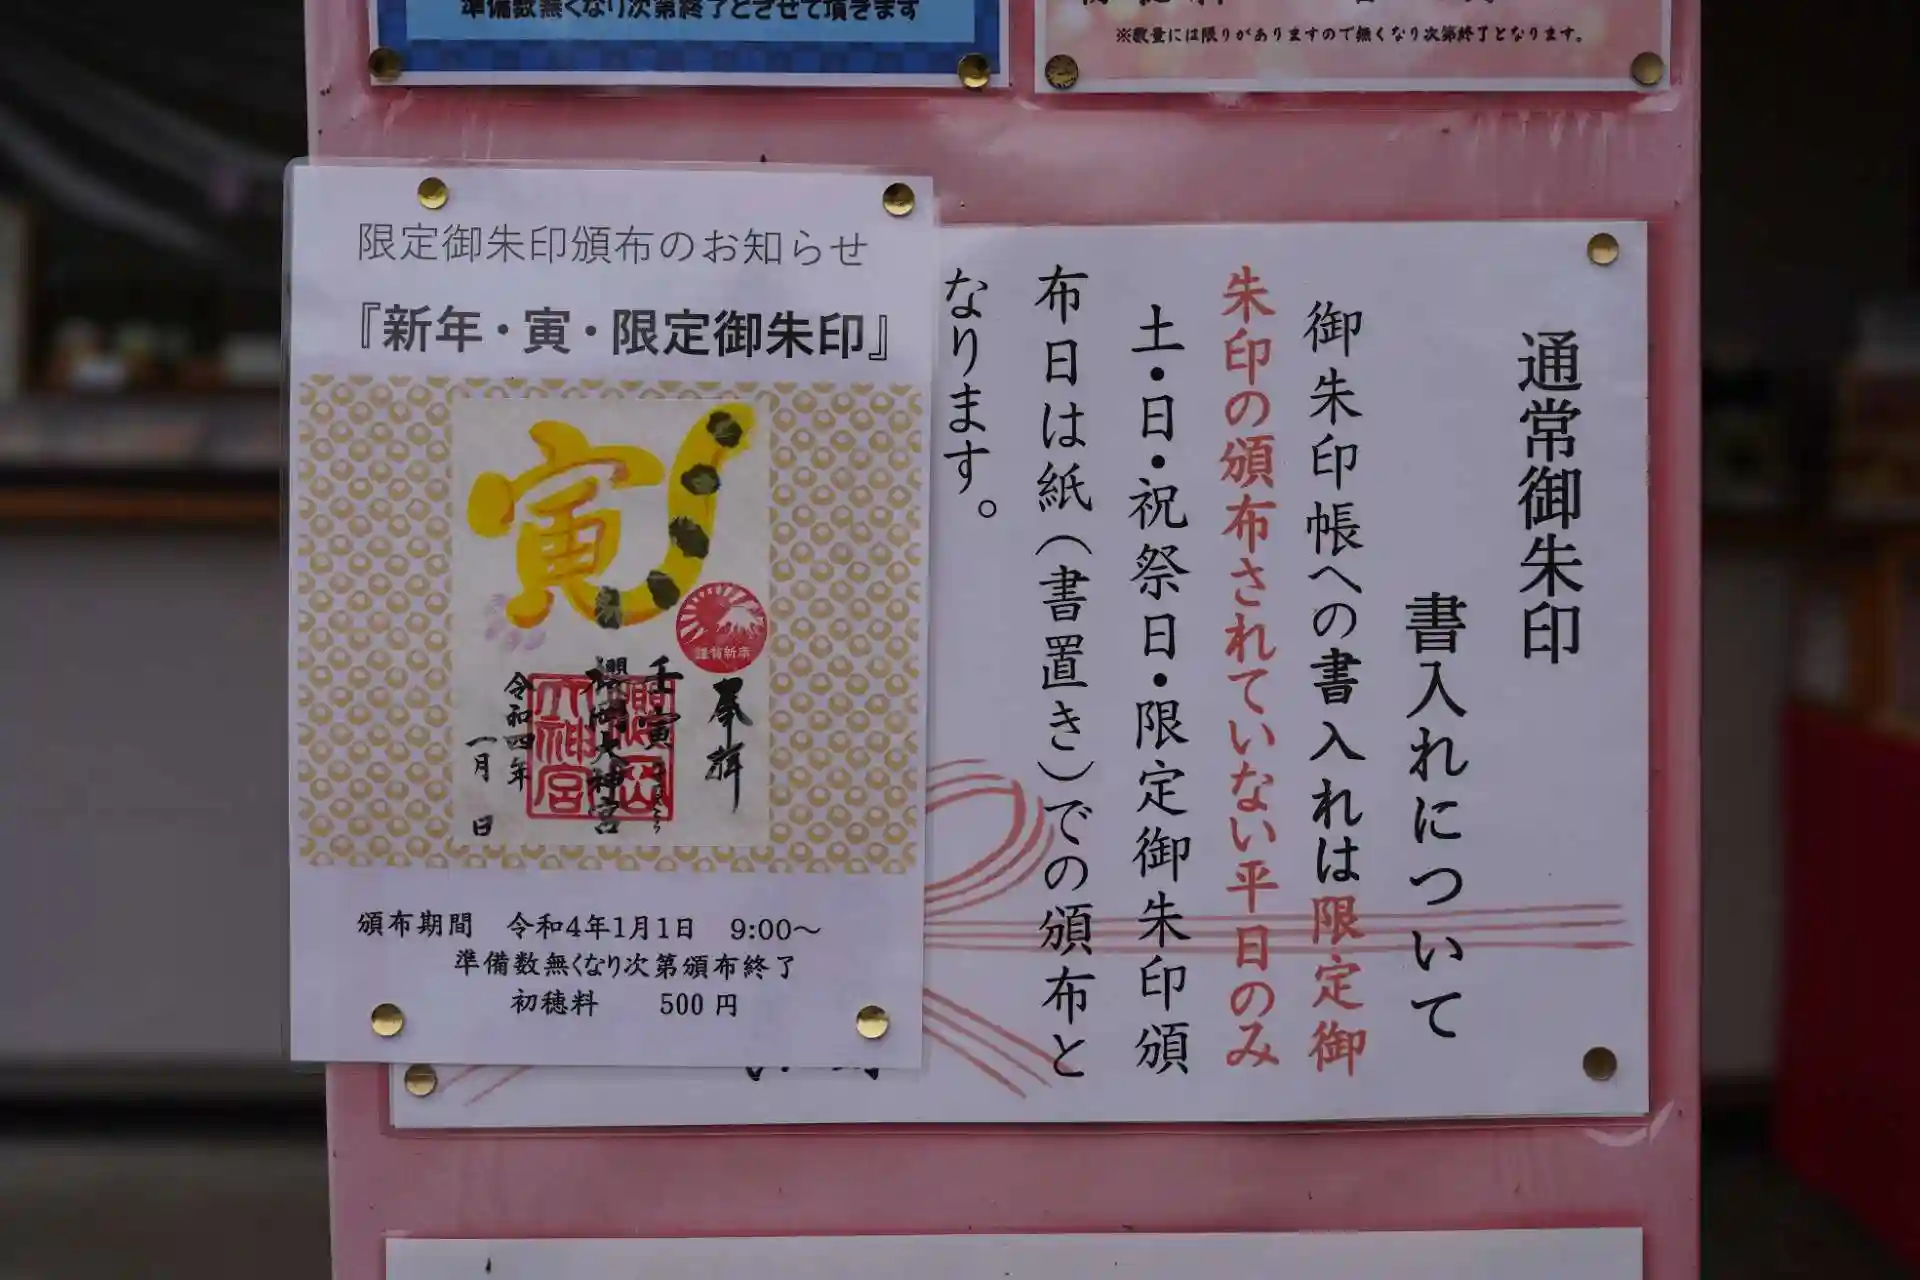 準備数無くなり次第終了とさせて頂きます
※数量には限りがありますので無くなり次第終了となります。
限定御朱印頒布のお知らせ
『新年・寅・限定御朱印』
寅
謹賀新年
奉拝
壬寅
櫻岡大神宮
令和四年
一月 日
頒布期間 令和4年1月1日 9:00〜
準備数無くなり次第頒布終了
初穂料 500円
通常御朱印
書入れについて
御朱印帳への書入れは限定御
朱印の頒布されていない平日のみ
土・日・祝祭日・限定御朱印頒
布日は紙(書置き)での頒布と
なります。